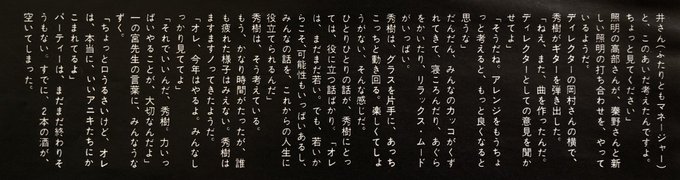 井さん（あたりともマネージャー）
と、このあいだ考えたんですよ。
ちょっと見てください」
照明の高部さんが、秦野さんと新
しい照明の打ち合わせを、やって
いるようだ。
ディレクターの岡村さんの横で、
秀樹がギターを弾き出した。
「ねえ、また、曲を作ったんだ。
ディレクターとしての意見を聞か
せてよ」
「そうだねえ。アレンジをもうちょ
っと考えると、もっと良くなると
思うな」
だんだん、みんなのカッコがくず
れてきて、寝ころんだり、あぐら
をかいたり、リラックス・ムード
がいっぱい。
秀樹は、グラスを片手に、あっち
こっちと動き回る。楽しくてしょ
うがない、そんな感じだ。
ひとりひとりの話が、秀樹にとっ
ては、役に立つ話ばかり。「オレ
は、まだまだ若い。でも、若いか
らこそ、可能性もいっぱいあるし、
みんなの話を、これからの人生に
役立てられるんだ」
秀樹は、そう考えている。
もう、かなり時間がたったが、誰
も疲れた様子はみえない。秀樹は
ますますノってきたようだ。
「オレ、今年はやるよ。みんなし
っかり見ててよ」
「それでいいんだ、秀樹。力いっ
ぱいやることが、大切なんだよ」
一の宮先生の言葉に、みんなうな
ずく。
「ちょっと口うるさいけど、オレ
は、本当に、いいアニキたちにか
こまれてるよ」
パーティーは、まだまだ終わりそ
うもない。すでに、2本の酒が、
空いてしまった。